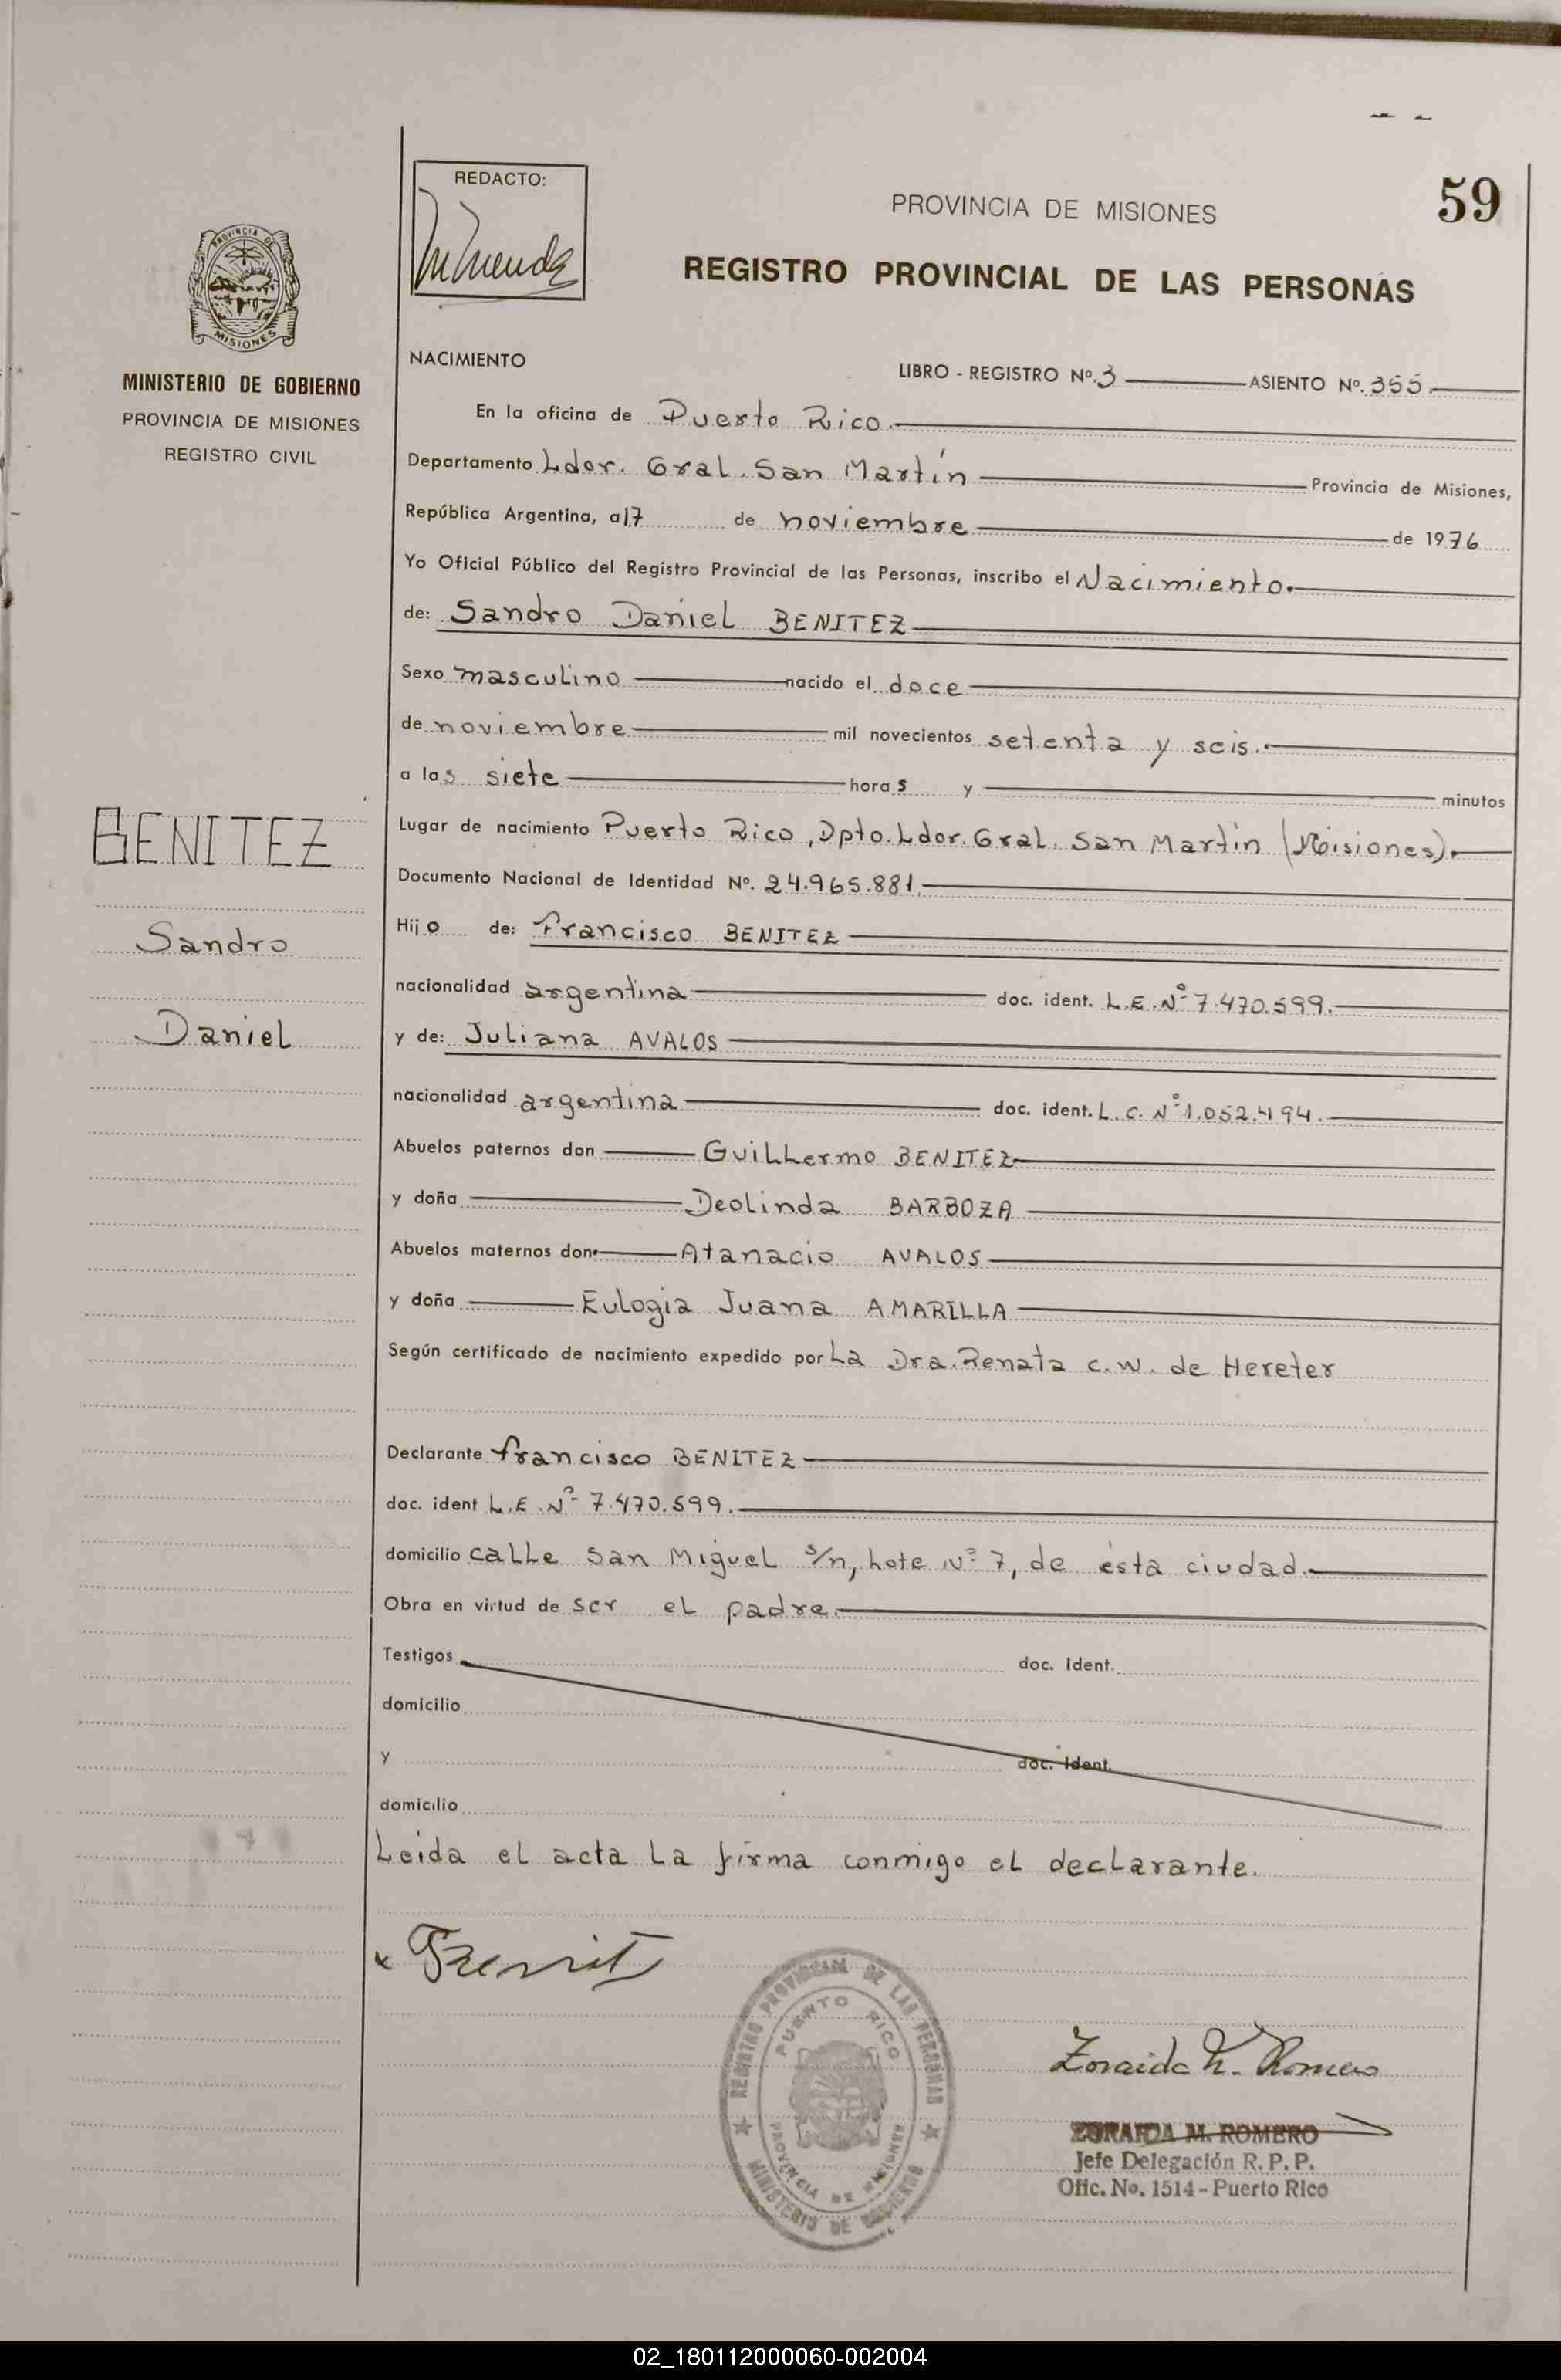 REDACTO:
PROVINCIA DE MISIONES
59
REGISTRO PROVINCIAL DE LAS PERSONAS
PROVINCIA DE
MISIONES
MINISTERIO DE GOBIERNO
PROVINCIA DE MISIONES
REGISTRO CIVIL
BENITEZ
Sandro
Daniel
NACIMIENTO
LIBRO - REGISTRO Nº. 3 ASIENTO Nº. 355.
En la oficina de Puerto Rico.
Departamento Ldor. Gral. San Martín Provincia de Misiones,
República Argentina, a 17 de noviembre de 1976
Yo Oficial Público del Registro Provincial de las Personas, inscribo el Nacimiento.
de: Sandro Daniel BENITEZ
Sexo masculino nacido el doce
de noviembre mil novecientos setenta y seis.
a las siete horas y minutos
Lugar de nacimiento Puerto Rico, Dpto. Ldor. Gral. San Martín (Misiones).
Documento Nacional de Identidad Nº. 24.965.881.
Hijo de: Francisco BENITEZ
nacionalidad argentina doc. ident. L.E. Nº 7.470.599.
y de: Juliana AVALOS
nacionalidad argentina doc. ident. L.C. Nº 1.052.494.
Abuelos paternos don Guillermo BENITEZ
y doña Deolinda BARBOZA
Abuelos maternos don Atanacio AVALOS
y doña Eulogia Juana AMARILLA
Según certificado de nacimiento expedido por La Dra. Renata C. W. de Hereter
Declarante Francisco BENITEZ
doc. ident L.E. Nº 7.470.599.
domicilio calle San Miguel s/n, Lote Nº 7, de ésta ciudad.
Obra en virtud de ser el padre.
Testigos doc. Ident.
domicilio
y doc. Ident.
domicilio
Leida el acta la firma conmigo el declarante.
REGISTRO PROVINCIAL DE LAS PERSONAS
PUERTO RICO
PROVINCIA DE MISIONES
MINISTERIO DE GOBIERNO
Zoraida M. Romero
ZORAIDA M. ROMERO
Jefe Delegación R. P. P.
Ofic. No. 1514 - Puerto Rico
02_180112000060-002004